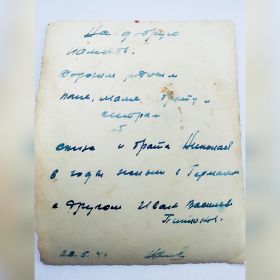 На добрую
память.
Дорогим родным
папе, маме, брату и
сестрам
от
сына и брата Николая
в годы жизни в Германии
с другом Иван Васильев.
28.5.4